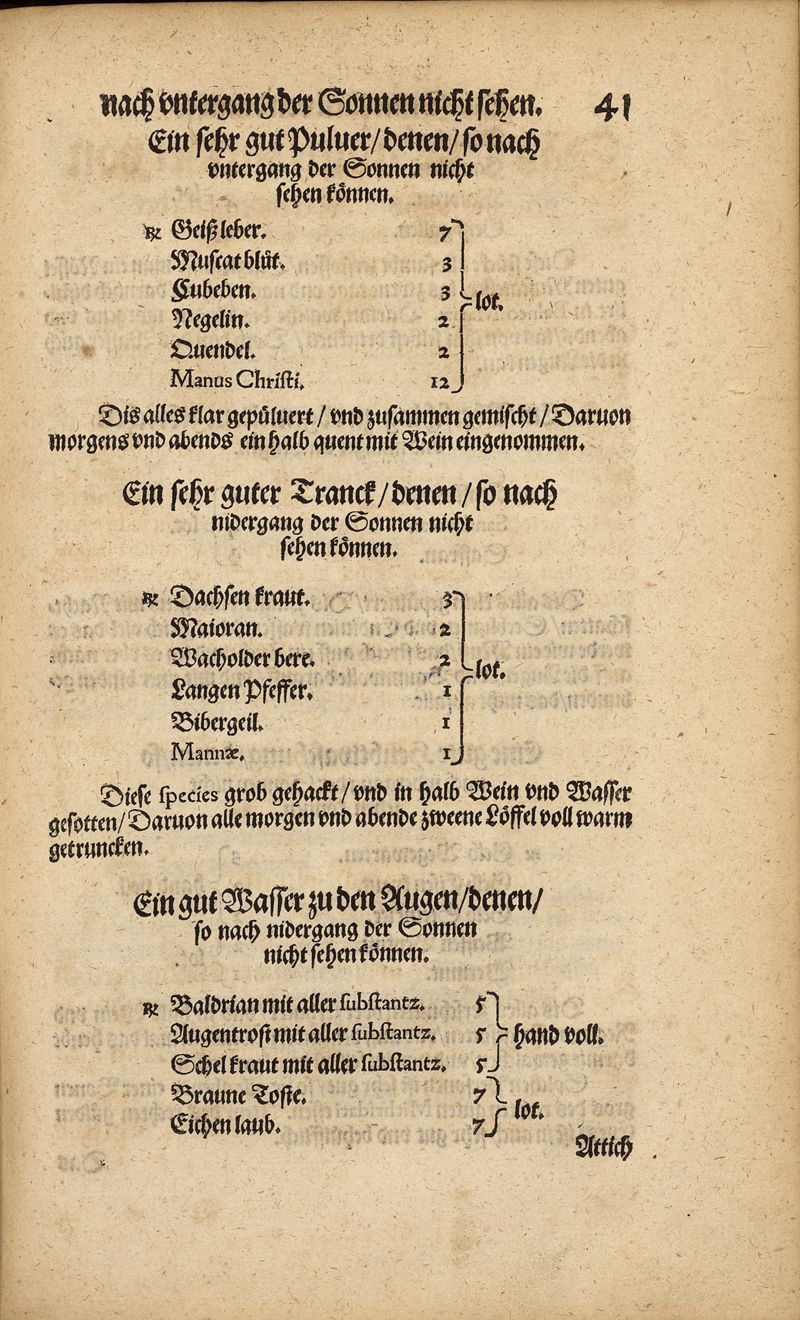 nach vntergang der Sonnen nicht sehen. 41
Ein sehr gut Puluer/denen/so nach
vntergang der Sonnen nicht
sehen können.
℞ Geißleber. 7
Muscatblüt. 3
Kubeben. 3 lot.
Negelin. 2
Quendel. 2
Manus Christi. 12
Dis alles klar gepüluert/vnd zusammen gemischt/Daruon
morgens vnd abends ein halb quent mit Wein eingenommen.
Ein sehr guter Tranck/denen/so nach
nidergang der Sonnen nicht
sehen können.
℞ Dachsen kraut. 3
Maioran. 2
Wacholder bere. 2 lot.
Langen Pfeffer. 1
Bibergeil. 1
Mannæ. 1
Diese species grob gehackt/vnd in halb Wein vnd Wasser
gesotten/Daruon alle morgen vnd abende zweene Löffel voll warm
getruncken.
Ein gut Wasser zu den Augen/denen/
so nach nidergang der Sonnen
nicht sehen können.
℞ Baldrian mit aller substantz. 5
Augentrost mit aller substantz. 5 hand voll.
Schelkraut mit aller substantz. 5
Braune Toste. 7 lot.
Eichen laub. 7
Attich